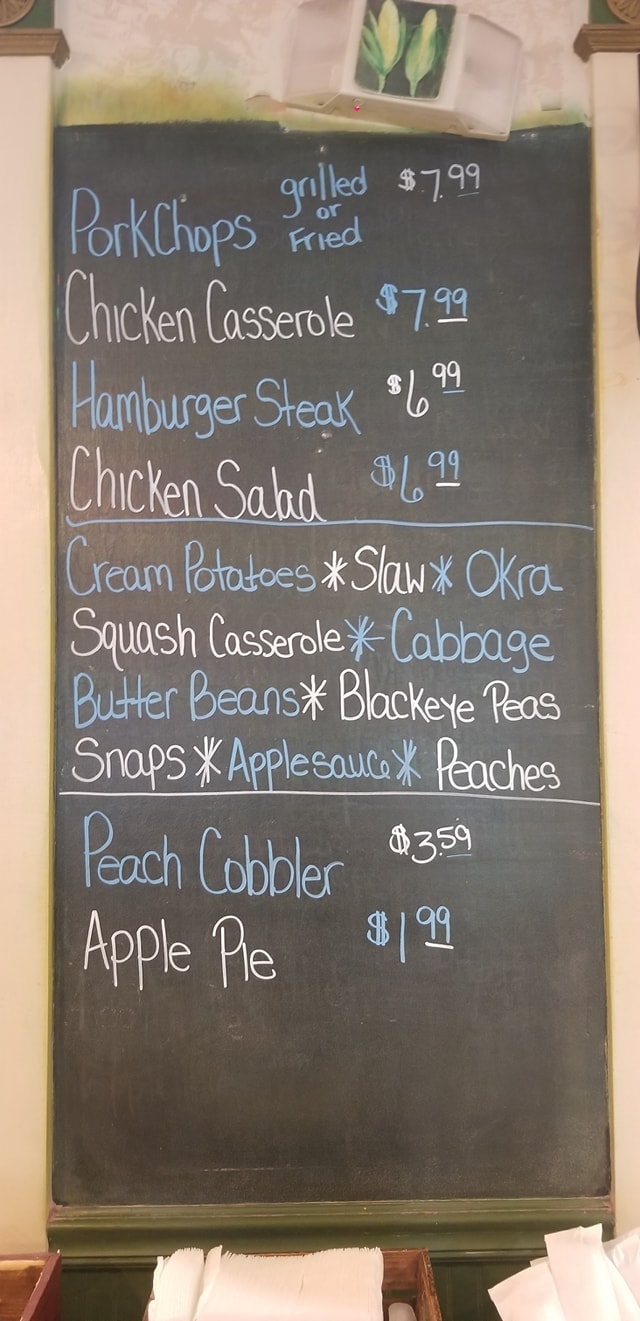 PorkChops grilled or Fried $7.99
Chicken Casserole $7.99
Hamburger Steak $6 99
Chicken Salad $6 99
Cream Potatoes * Slaw * Okra
Squash Casserole * Cabbage
Butter Beans * Blackeye Peas
Snaps * Applesauce * Peaches
Peach Cobbler $3.59
Apple Pie $1 99